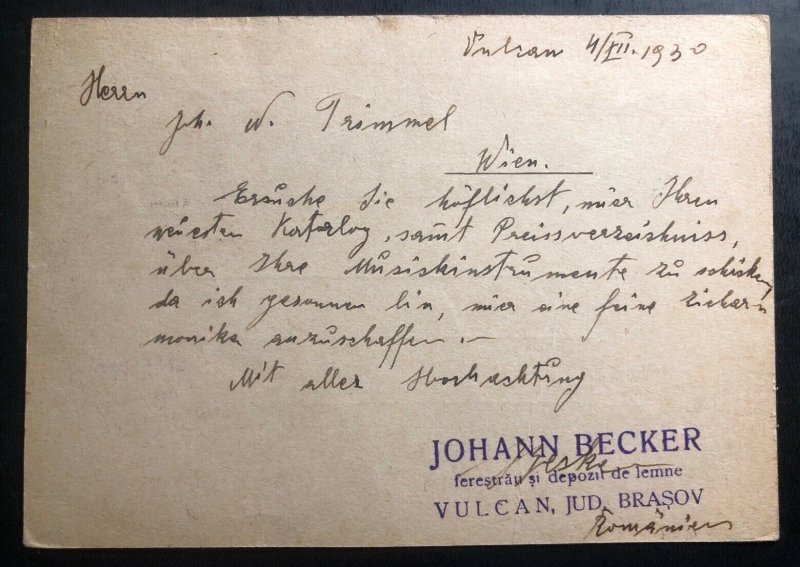 Vulcan 4/XII. 1930
Herrn
Joh. W. Trimmel
Wien.
Ersuche Sie höflichst, mier Ihren
neuesten Katalog, samt Preissverzeichniss,
über Ihre Musiskinstrumente zu schicken,
da ich gesonnen bin, mier eine feine Zieharm
monika anzuschaffen.–
Mit aller Hochachtung
JOHANN BECKER
JBecker
ferestrău și depozit de lemne
VULCAN, JUD. BRAȘOV
Românien